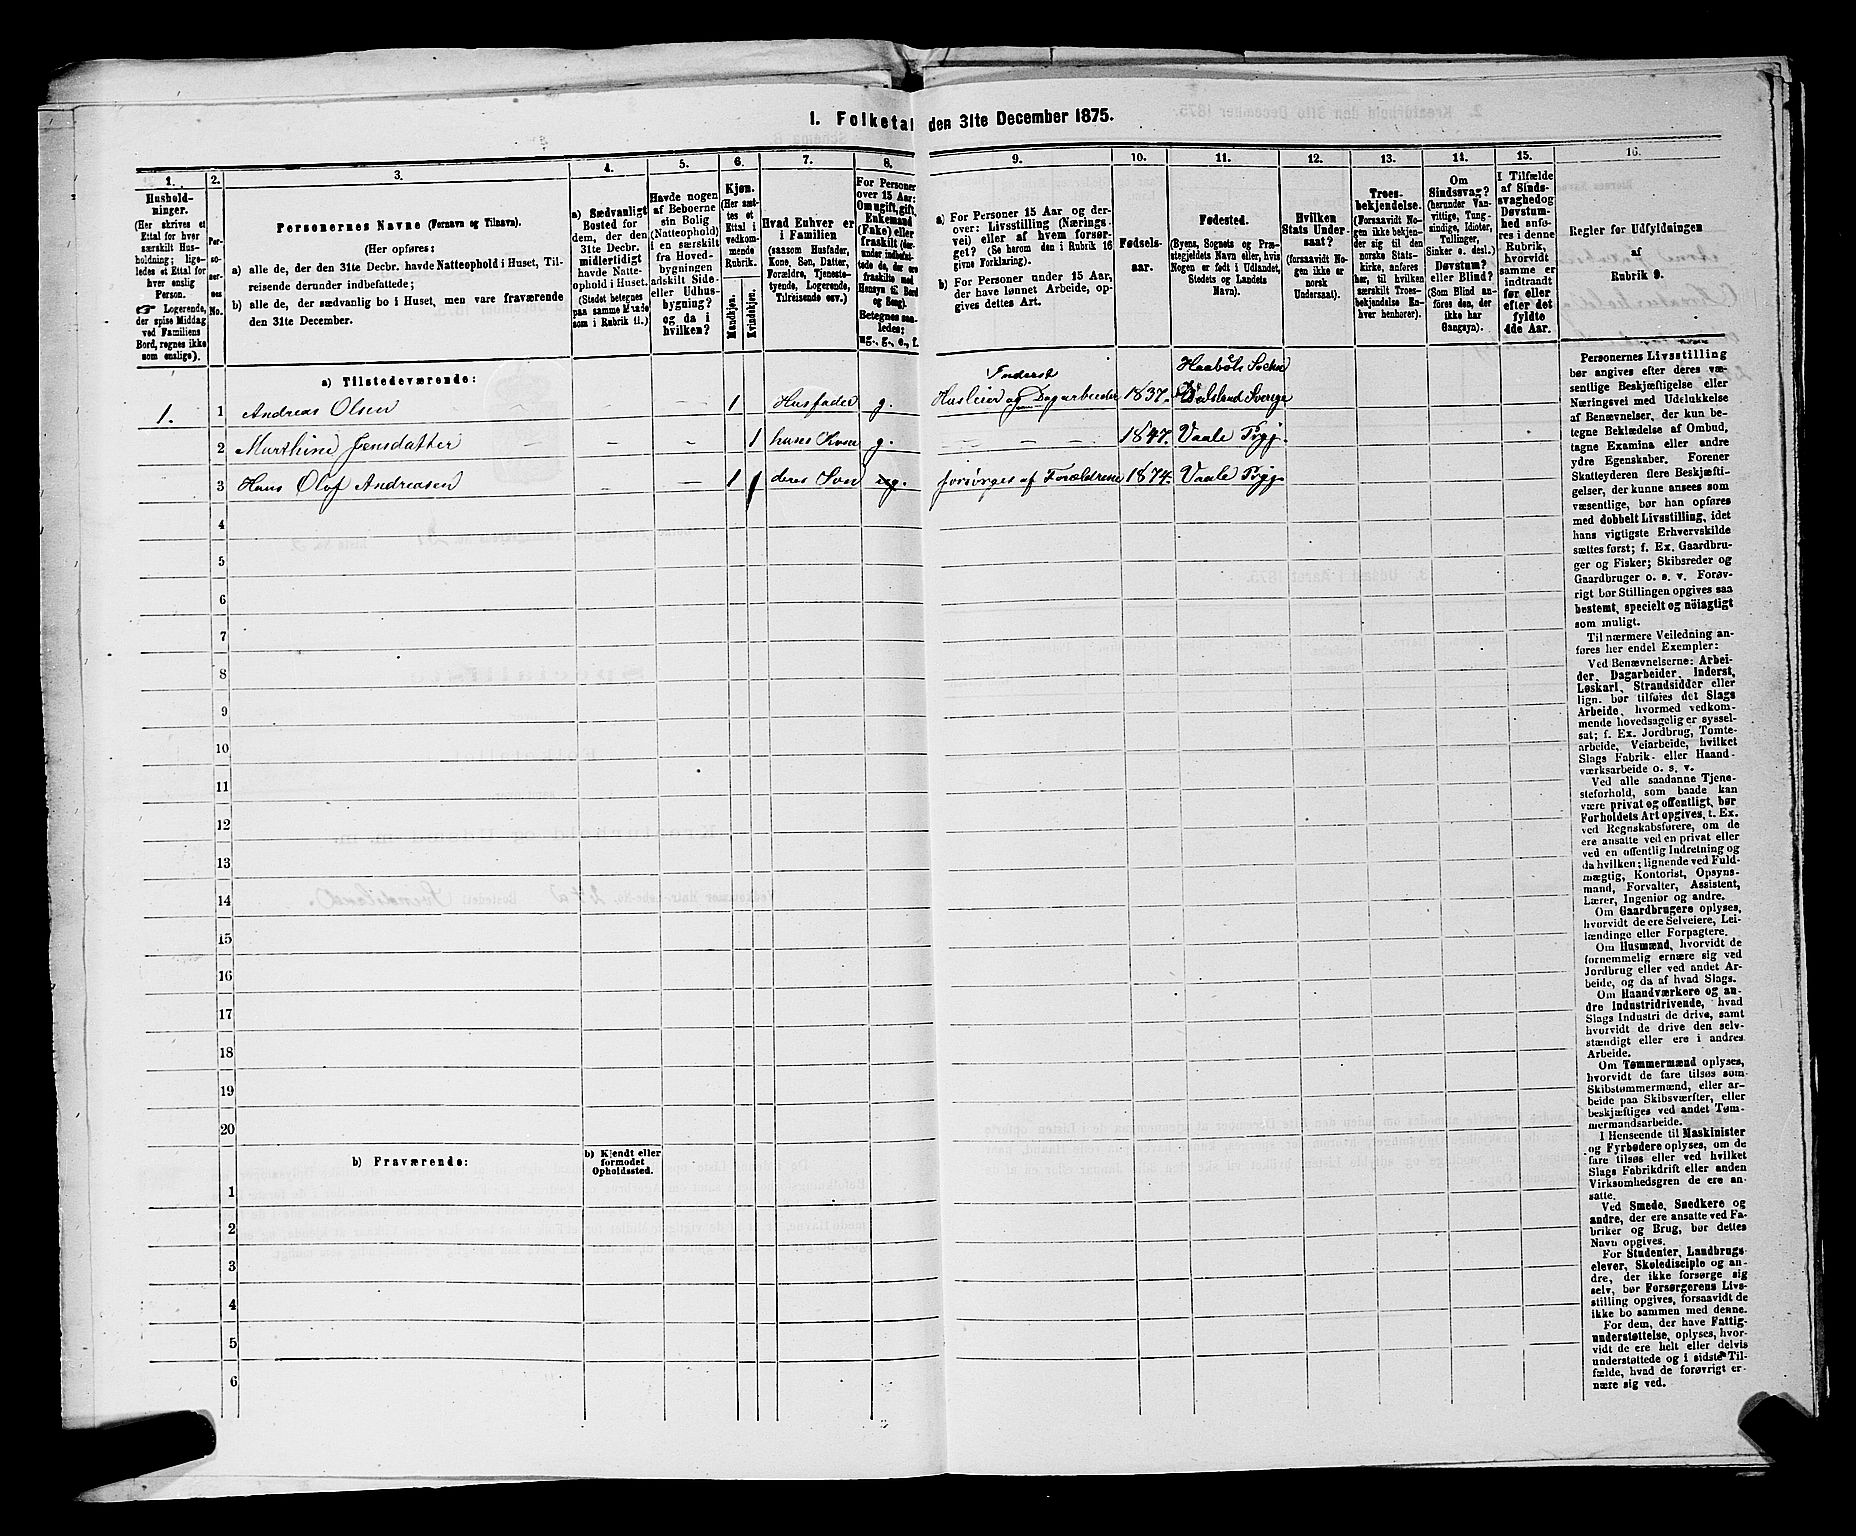 1. Folketal den 31te December 1875.
1.
2.
3.
4.
5.
6.
7.
8.
9.
10.
11.
12.
13.
14.
15.
16.
Hushold-
ninger.
(Her skrives et
Ettal for hver
særskilt Hus-
holdning; lige-
ledes et Ettal for
hver enslig
Person.
☞ Logerende,
der spise Middag
ved Familiens
Bord, regnes ikke
som enslige).
Per-
so-
ner-
nes
No.
Personernes Navne (Fornavn og Tilnavn).
(Her opføres:
a) alle de, der den 31te Decbr. havde Natteophold i Huset, Til-
reisende derunder indbefattede;
b) alle de, der sædvanlig bo i Huset, men vare fraværende
den 31te December.
a) Sædvanligt
Bosted for
dem, der den
31te Decbr.
midlertidigt
havde Natte-
ophold i Huset.
(Stedet betegnes
paa samme Maade
som i Rubrik 11.)
Havde nogen
af Beboerne
sin Bolig
(Natteophold)
i en særskilt
fra Hoved-
bygningen
adskilt Side-
eller Udhus-
bygning?
og da i
hvilken?
Kjøn.
(Her sæt-
tes et
Ettal i
vedkom-
mende
Rubrik.
Mandkjøn.
Kvindekjøn.
Hvad Enhver er
i Familien
(saasom Husfader,
Kone, Søn, Datter,
Forældre, Tjeneste-
tyende, Logerende,
Tilreisende osv.)
For Personer
over 15 Aar:
Om ugift, gift,
Enkemand
(Enke) eller
fraskilt (der-
under indbefat-
tede de, der ere
fraskilte med
Hensyn til Bord
og Seng).
Betegnes saa-
ledes:
ug., g., e., f.
a) For Personer 15 Aar og der-
over: Livsstilling (Nærings-
vei) eller af hvem forsør-
get (Se herom den i Rubrik 16
givne Forklaring).
b) For Personer under 15 Aar,
der have lønnet Arbeide, op-
gives dettes Art.
Fødsels-
aar.
Fødested.
(Byens, Sognets og Præ-
stegjeldets Navn eller, hvis
Nogen er født i Udlandet,
Stedets og Landets
Navn).
Hvilken
Stats Under-
saat?
(forsaavidt No-
gen ikke er
norsk
Undersaat).
Troes-
bekjendelse.
(Forsaavidt No-
gen ikke bekjen-
der sig til den
norske Stats-
kirke, anføres
her, til hvilken
særskilt Troes-
bekjendelse En-
hver henhører).
Om
Sindssvag?
(herunder Van-
vittige, Tung-
sindige, Idioter,
Tullinger,
Sinker o. desl.)
Døvstum?
eller Blind?
(Som Blind an-
føres den, der
ikke har
Gangsyn).
I Tilfælde
af Sinds-
svaghed og
Døvstum-
hed anfø-
res i denne
Rubrik,
hvorvidt
samme er
indtraadt
før eller
efter det
fyldte
4de Aar.
Regler for Udfyldningen
af
Rubrik 9.
a) Tilstedeværende:
Inderst Haabøls Sochn
1. 1 Andreas Olsen — — 1 Husfader g. Husleier og Dagarbeider 1837. Dalsland Sverige
2 Marthine Jensdatter — — 1 hans Kone g. — — — 1847. Vaale Prgj.
3 Hans Olof Andreasen — — 1 deres Søn ug. forsørges af Forældrene 1874. Vaale Prgj.
4
5
6
7
8
9
10
11
12
13
14
15
16
17
18
19
20
b) Fraværende:
b) Kjendt eller
formodet
Opholdssted.
1
2
3
4
5
6
Personernes Livsstilling
bør angives efter deres væ-
sentlige Beskjæftigelse eller
Næringsvei med Udelukkelse
af Benævnelser, der kun be-
tegne Beklædelse af Ombud,
tagne Examina eller andre
ydre Egenskaber. Forener
Skatteyderen flere Beskjæfti-
gelser, der kunne ansees som
væsentlige, bør han opføres
med dobbelt Livsstilling, idet
hans vigtigste Erhvervskilde
sættes først; f. Ex. Gaardbru-
ger og Fisker; Skibsreder og
Gaardbruger o. s. v. Forøv-
rigt bør Stillingen opgives saa
bestemt, specielt og nöiagtigt
som muligt.
Til nærmere Veiledning an-
føres her endel Exempler:
Ved Benævnelserne: Arbei-
der, Dagarbeider, Inderst,
Løskarl, Strandsidder eller
lign. bør tilføies det Slags
Arbeide, hvormed vedkom-
mende hovedsagelig er syssel-
sat; f. Ex. Jordbrug, Tomte-
arbeide, Veiarbeide, hvilket
Slags Fabrik- eller Haand-
værksarbeide o. s. v.
Ved alle saadanne Tjene-
steforhold, som baade kan
være privat og offentligt, bør
Forholdets Art opgives, t. Ex.
ved Regnskabsførere, om de
ere ansatte ved en privat eller
ved en offentlig Indretning og
da hvilken; lignende ved Fuld-
mægtig, Kontorist, Opsyns-
mand, Forvalter, Assistent,
Lærer, Ingeniør og andre.
Om Gaardbrugere oplyses,
hvorvidt de ere Selveiere, Lei-
lændinge eller Forpagtere.
Om Husmænd, hvorvidt de
fornemmelig ernære sig ved
Jordbrug eller ved andet Ar-
beide, og da af hvad Slags.
Om Haandværkere og an-
dre Industridrivende, hvad
Slags Industri de drive, samt
hvorvidt de drive den selv-
stændigt eller ere i andres
Arbeide.
Om Tømmermænd oplyses,
hvorvidt de fare tilsøs som
Skibstømmermænd, eller ar-
beide paa Skibsværfter, eller
beskjæftiges ved andet Tøm-
mermandsarbeide.
I Henseende til Maskinister
og Fyrbødere oplyses, om de
fare tilsøs eller ved hvilket
Slags Fabrikdrift eller anden
Virksomhedsgren de ere an-
satte.
Ved Smede, Snedkere og
andre, der ere ansatte ved Fa-
briker og Brug, bør dettes
Navn opgives.
For Studenter, Landbrugs-
elever, Skoledisciple og an-
dre, der ikke forsørge sig
selv, bør Forsørgerens Livs-
stilling opgives, forsaavidt de
ikke bo sammen med denne.
For dem, der have Fattig-
understøttelse, oplyses, hvor-
vidt de ere helt eller delvis
understøttede og i sidste Til-
fælde, hvad de forøvrigt er-
nære sig ved.